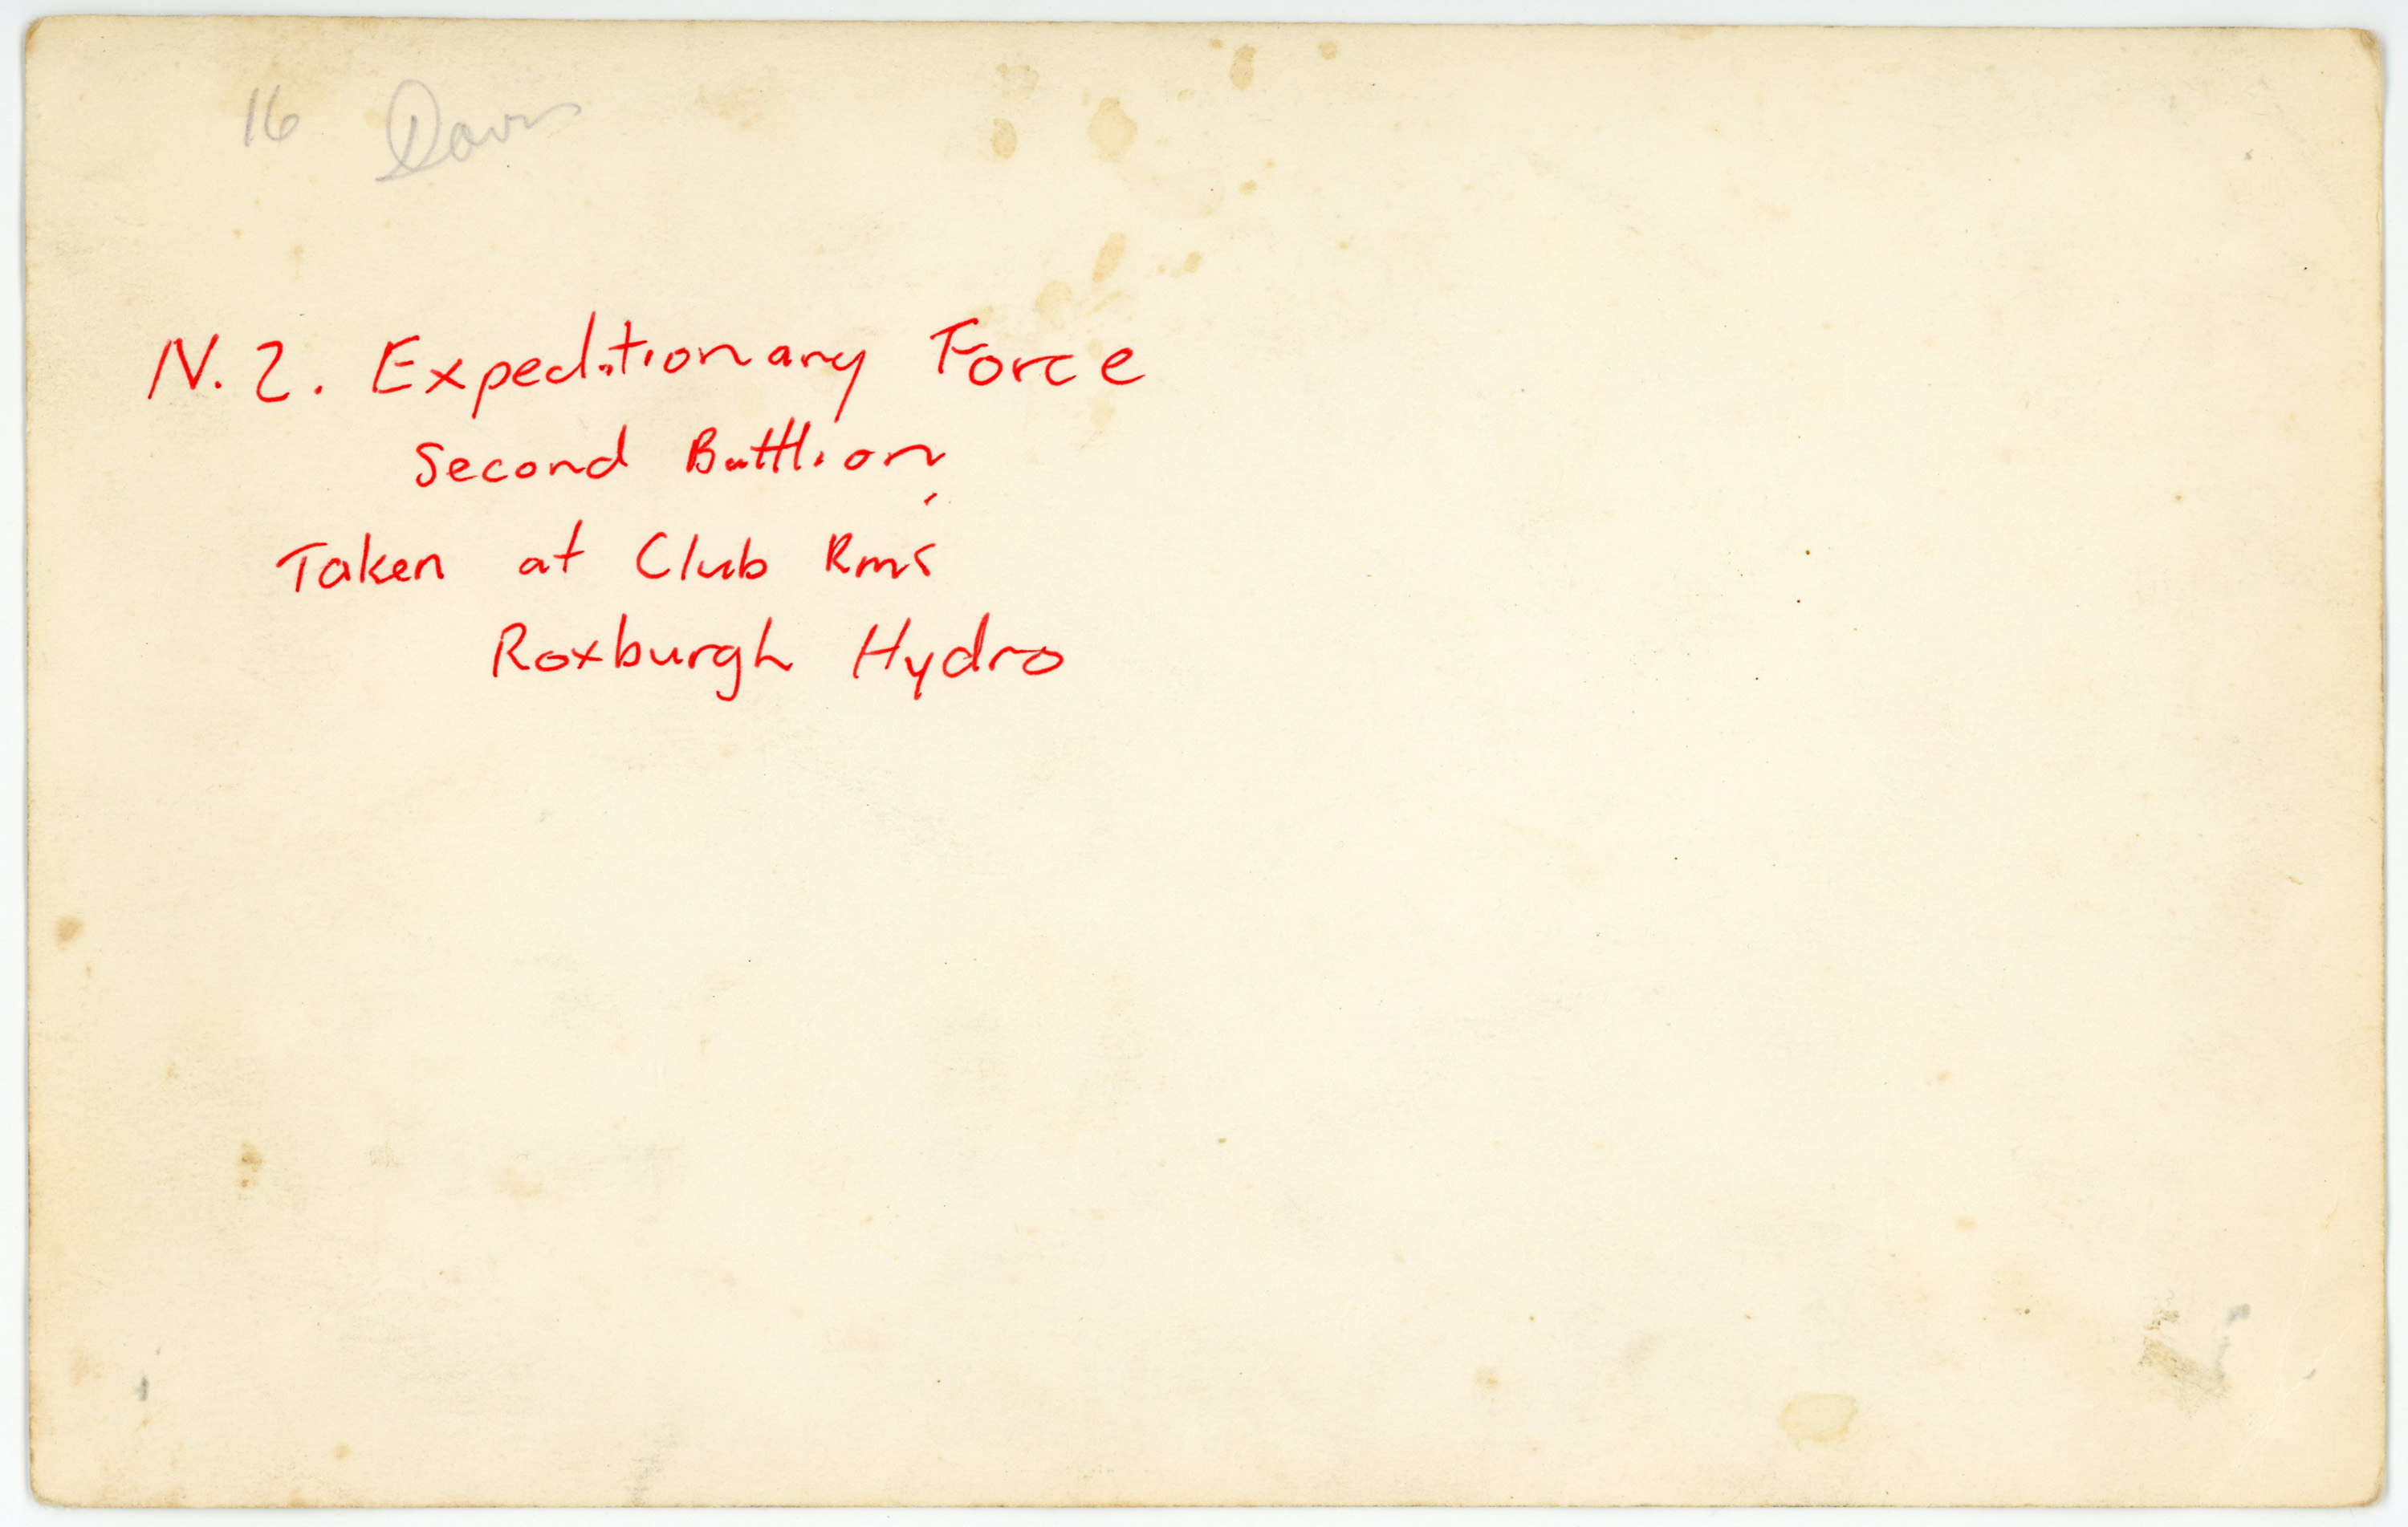 16 Davis
N.Z. Expeditionary Force
Second Battlion
Taken at Club Rms
Roxburgh Hydro